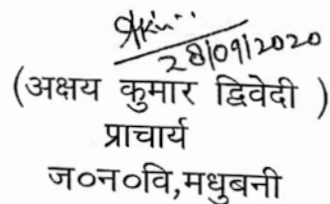 28/09/2020
(अक्षय कुमार द्विवेदी )
प्राचार्य
ज०न०वि,मधुबनी